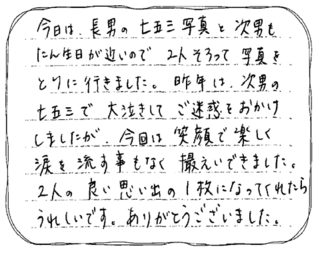 今日は、長男の七五三写真と次男も
たん生日が近いので 2人そろって写真を
とりに行きました。昨年は、次男の
七五三で大泣きしてご迷惑をおかけ
しましたが、今回は笑顔で楽しく
涙を流す事もなく撮えいできました。
2人の良い思い出の1枚になってくれたら
うれしいです。ありがとうございました。